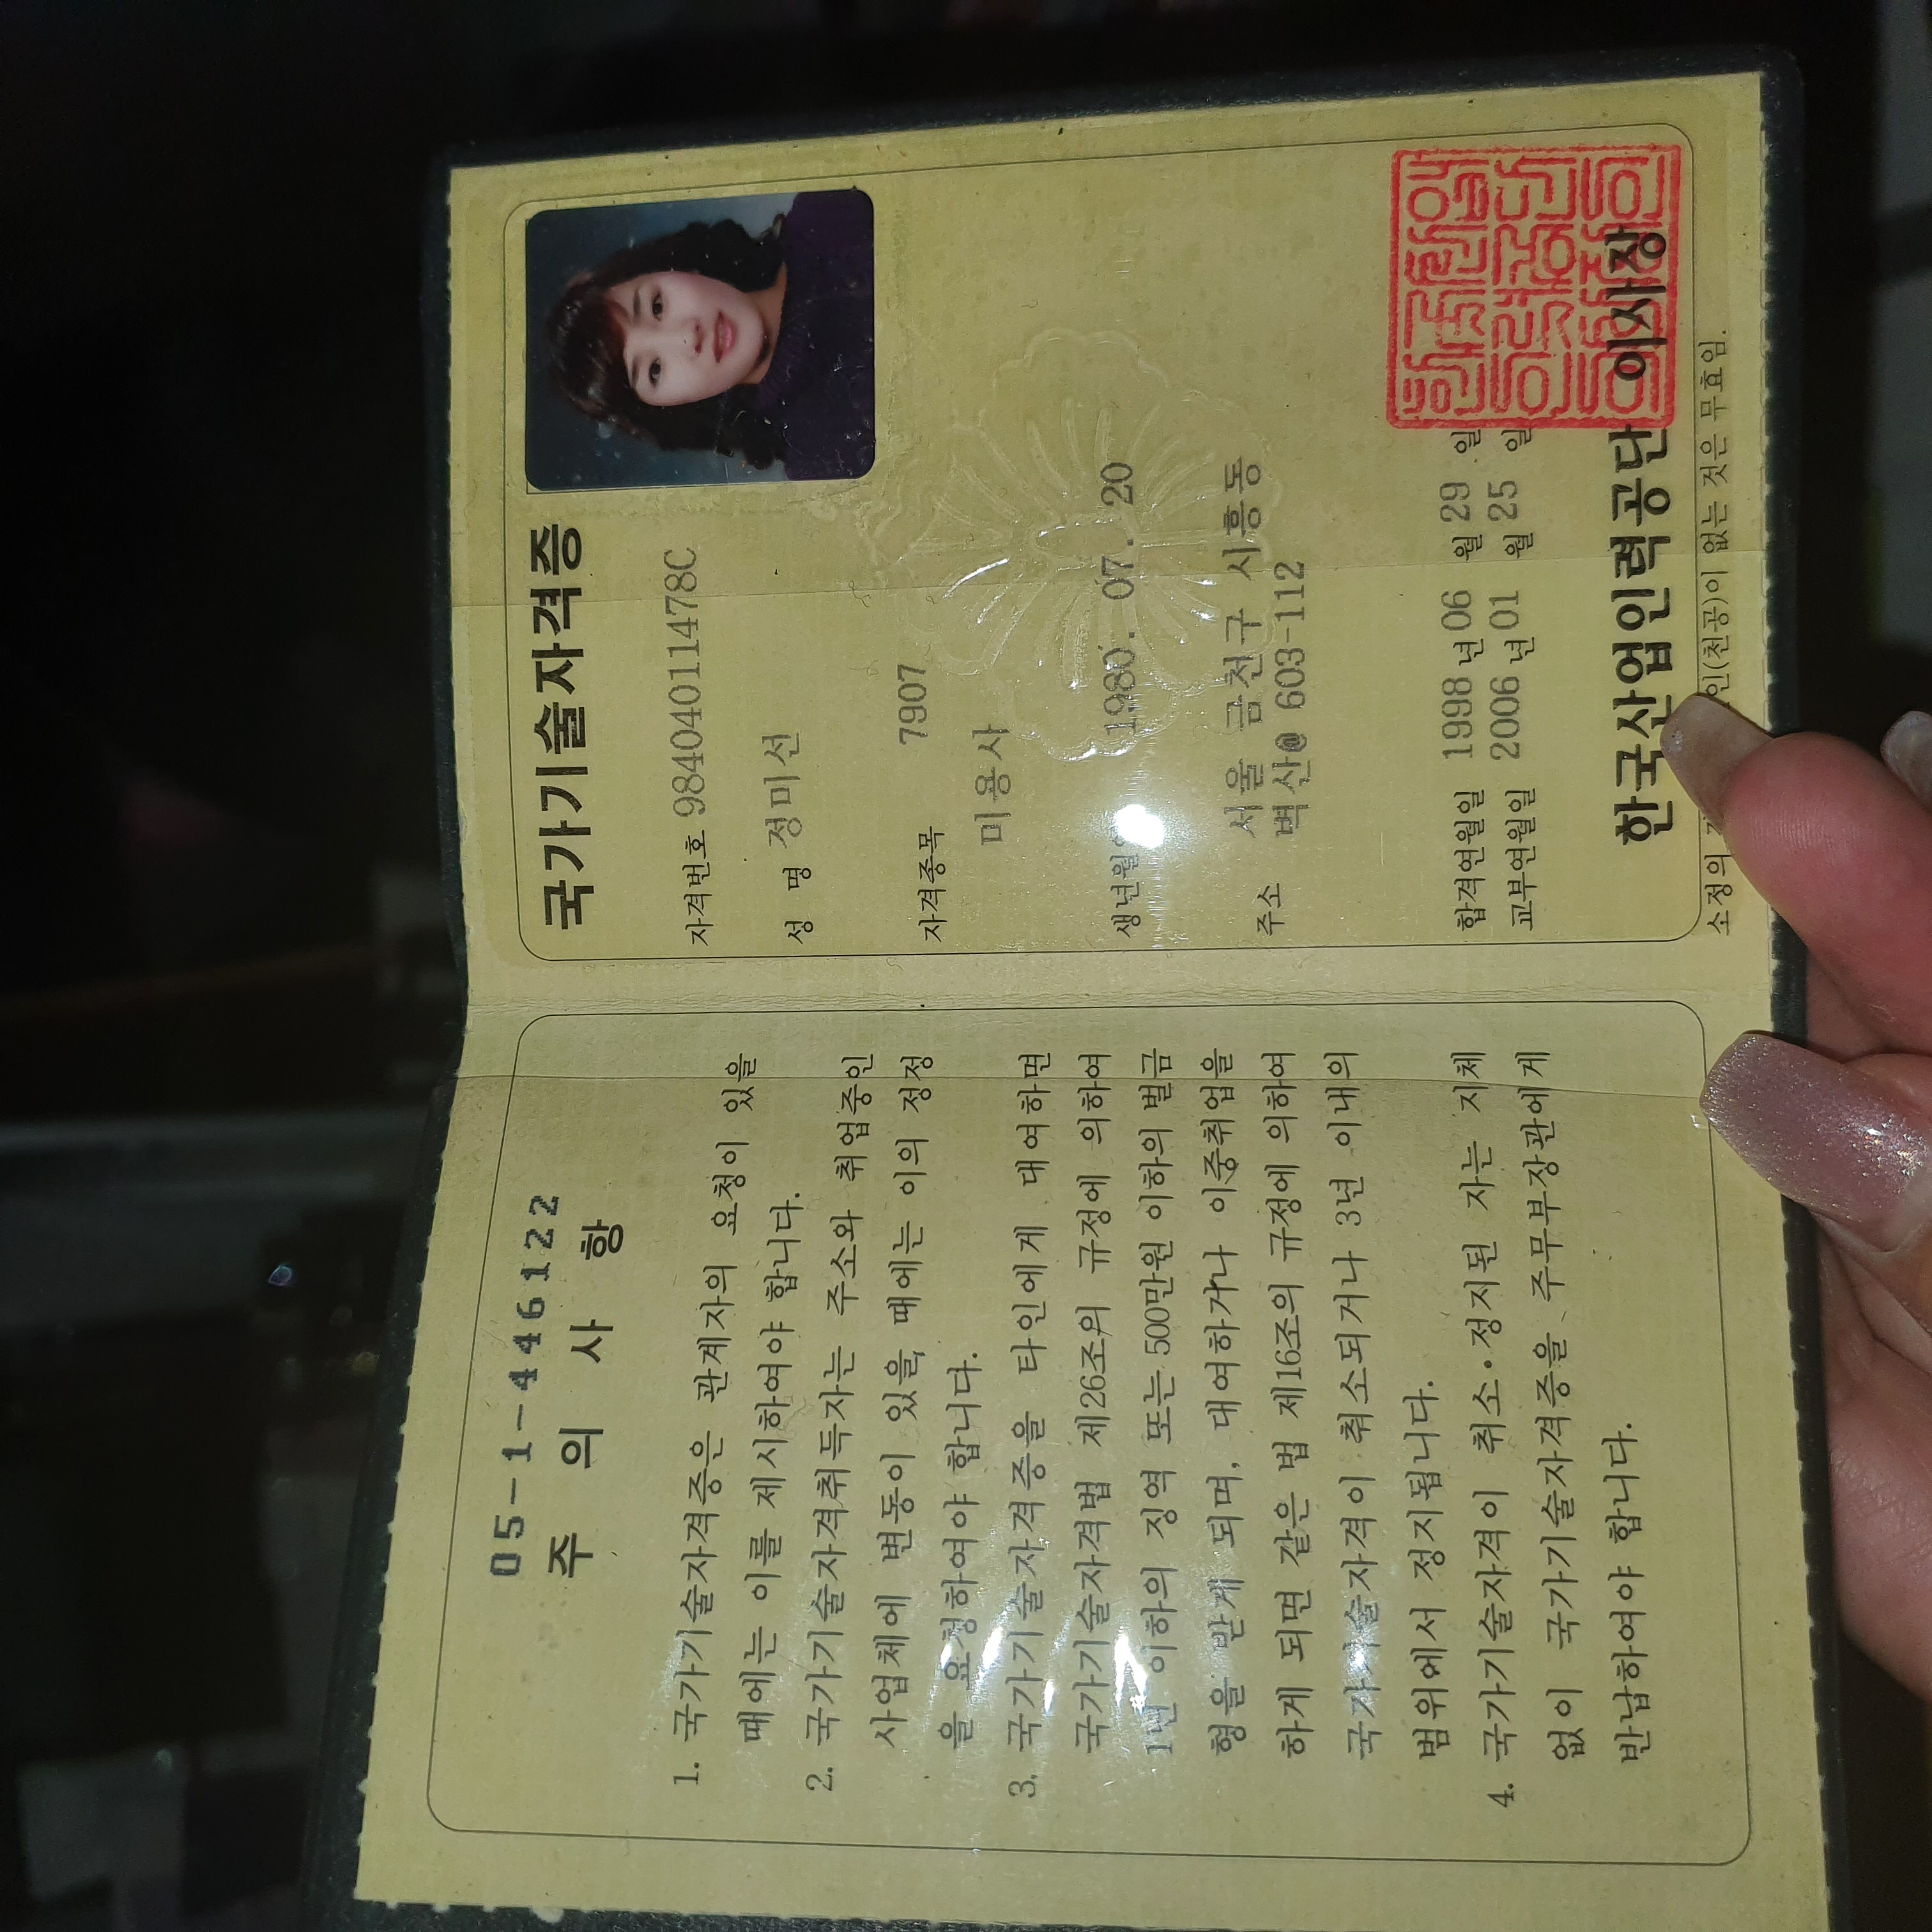 05-1-446122
주 의 사 항
1. 국가기술자격증은 관계자의 요청이 있을
때에는 이를 제시하여야 합니다.
2. 국가기술자격취득자는 주소와 취업중인
사업체에 변동이 있을 때에는 이의 정정
을 요청하여야 합니다.
3. 국가기술자격증을 타인에게 대여하면
국가기술자격법 제26조의 규정에 의하여
1년 이하의 징역 또는 500만원 이하의 벌금
형을 받게 되며, 대여하거나 이중취업을
하게 되면 같은 법 제16조의 규정에 의하여
국가기술자격이 취소되거나 3년 이내의
범위에서 정지됩니다.
4. 국가기술자격이 취소·정지된 자는 지체
없이 국가기술자격증을 주무부장관에게
반납하여야 합니다.
국가기술자격증
자격번호 98404011478C
성 명 정미선
자격종목 7907
미용사
생년월일 1980. 07. 20
주소 서울 금천구 시흥동
벽산@ 603-112
합격연월일 1998 년 06 월 29 일
교부연월일 2006 년 01 월 25 일
한국산업인력공단 이사장
소정의 인(천공)이 없는 것은 무효임.